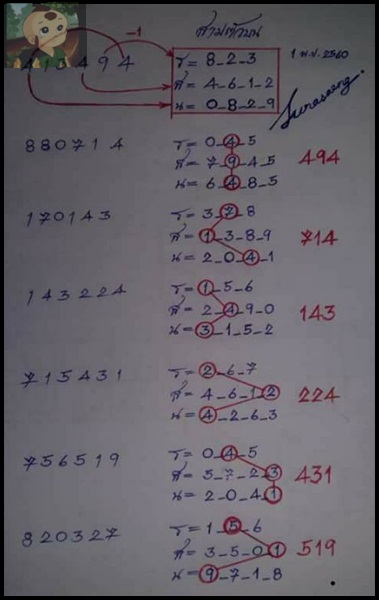 สามตัวบน
-1
1 พ.ย. 2560
413494
ร = 8-2-3
ส = 4-6-1-2
น = 0-8-2-9
880714
ร = 0-4-5
ส = 7-9-4-5
น = 6-4-8-5
494
170143
ร = 3-7-8
ส = 1-3-8-9
น = 2-0-4-1
714
143224
ร = 1-5-6
ส = 2-4-9-0
น = 3-1-5-2
143
715431
ร = 2-6-7
ส = 4-6-1-2
น = 4-2-6-3
224
756519
ร = 0-4-5
ส = 5-7-2-3
น = 2-0-4-1
431
820327
ร = 1-5-6
ส = 3-5-0-1
น = 9-7-1-8
519